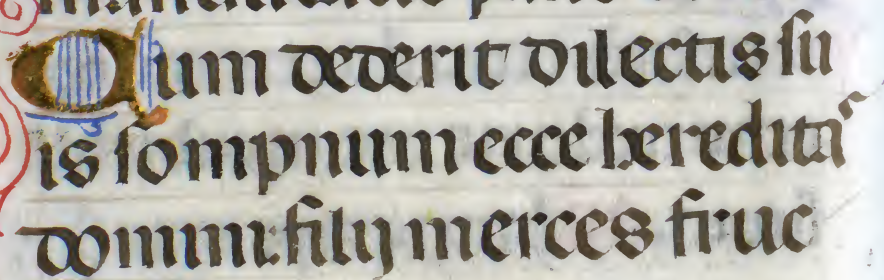 Cum dederit dilectis su
is sompnum ecce heredita&#x27;s
domini: filij merces fruc